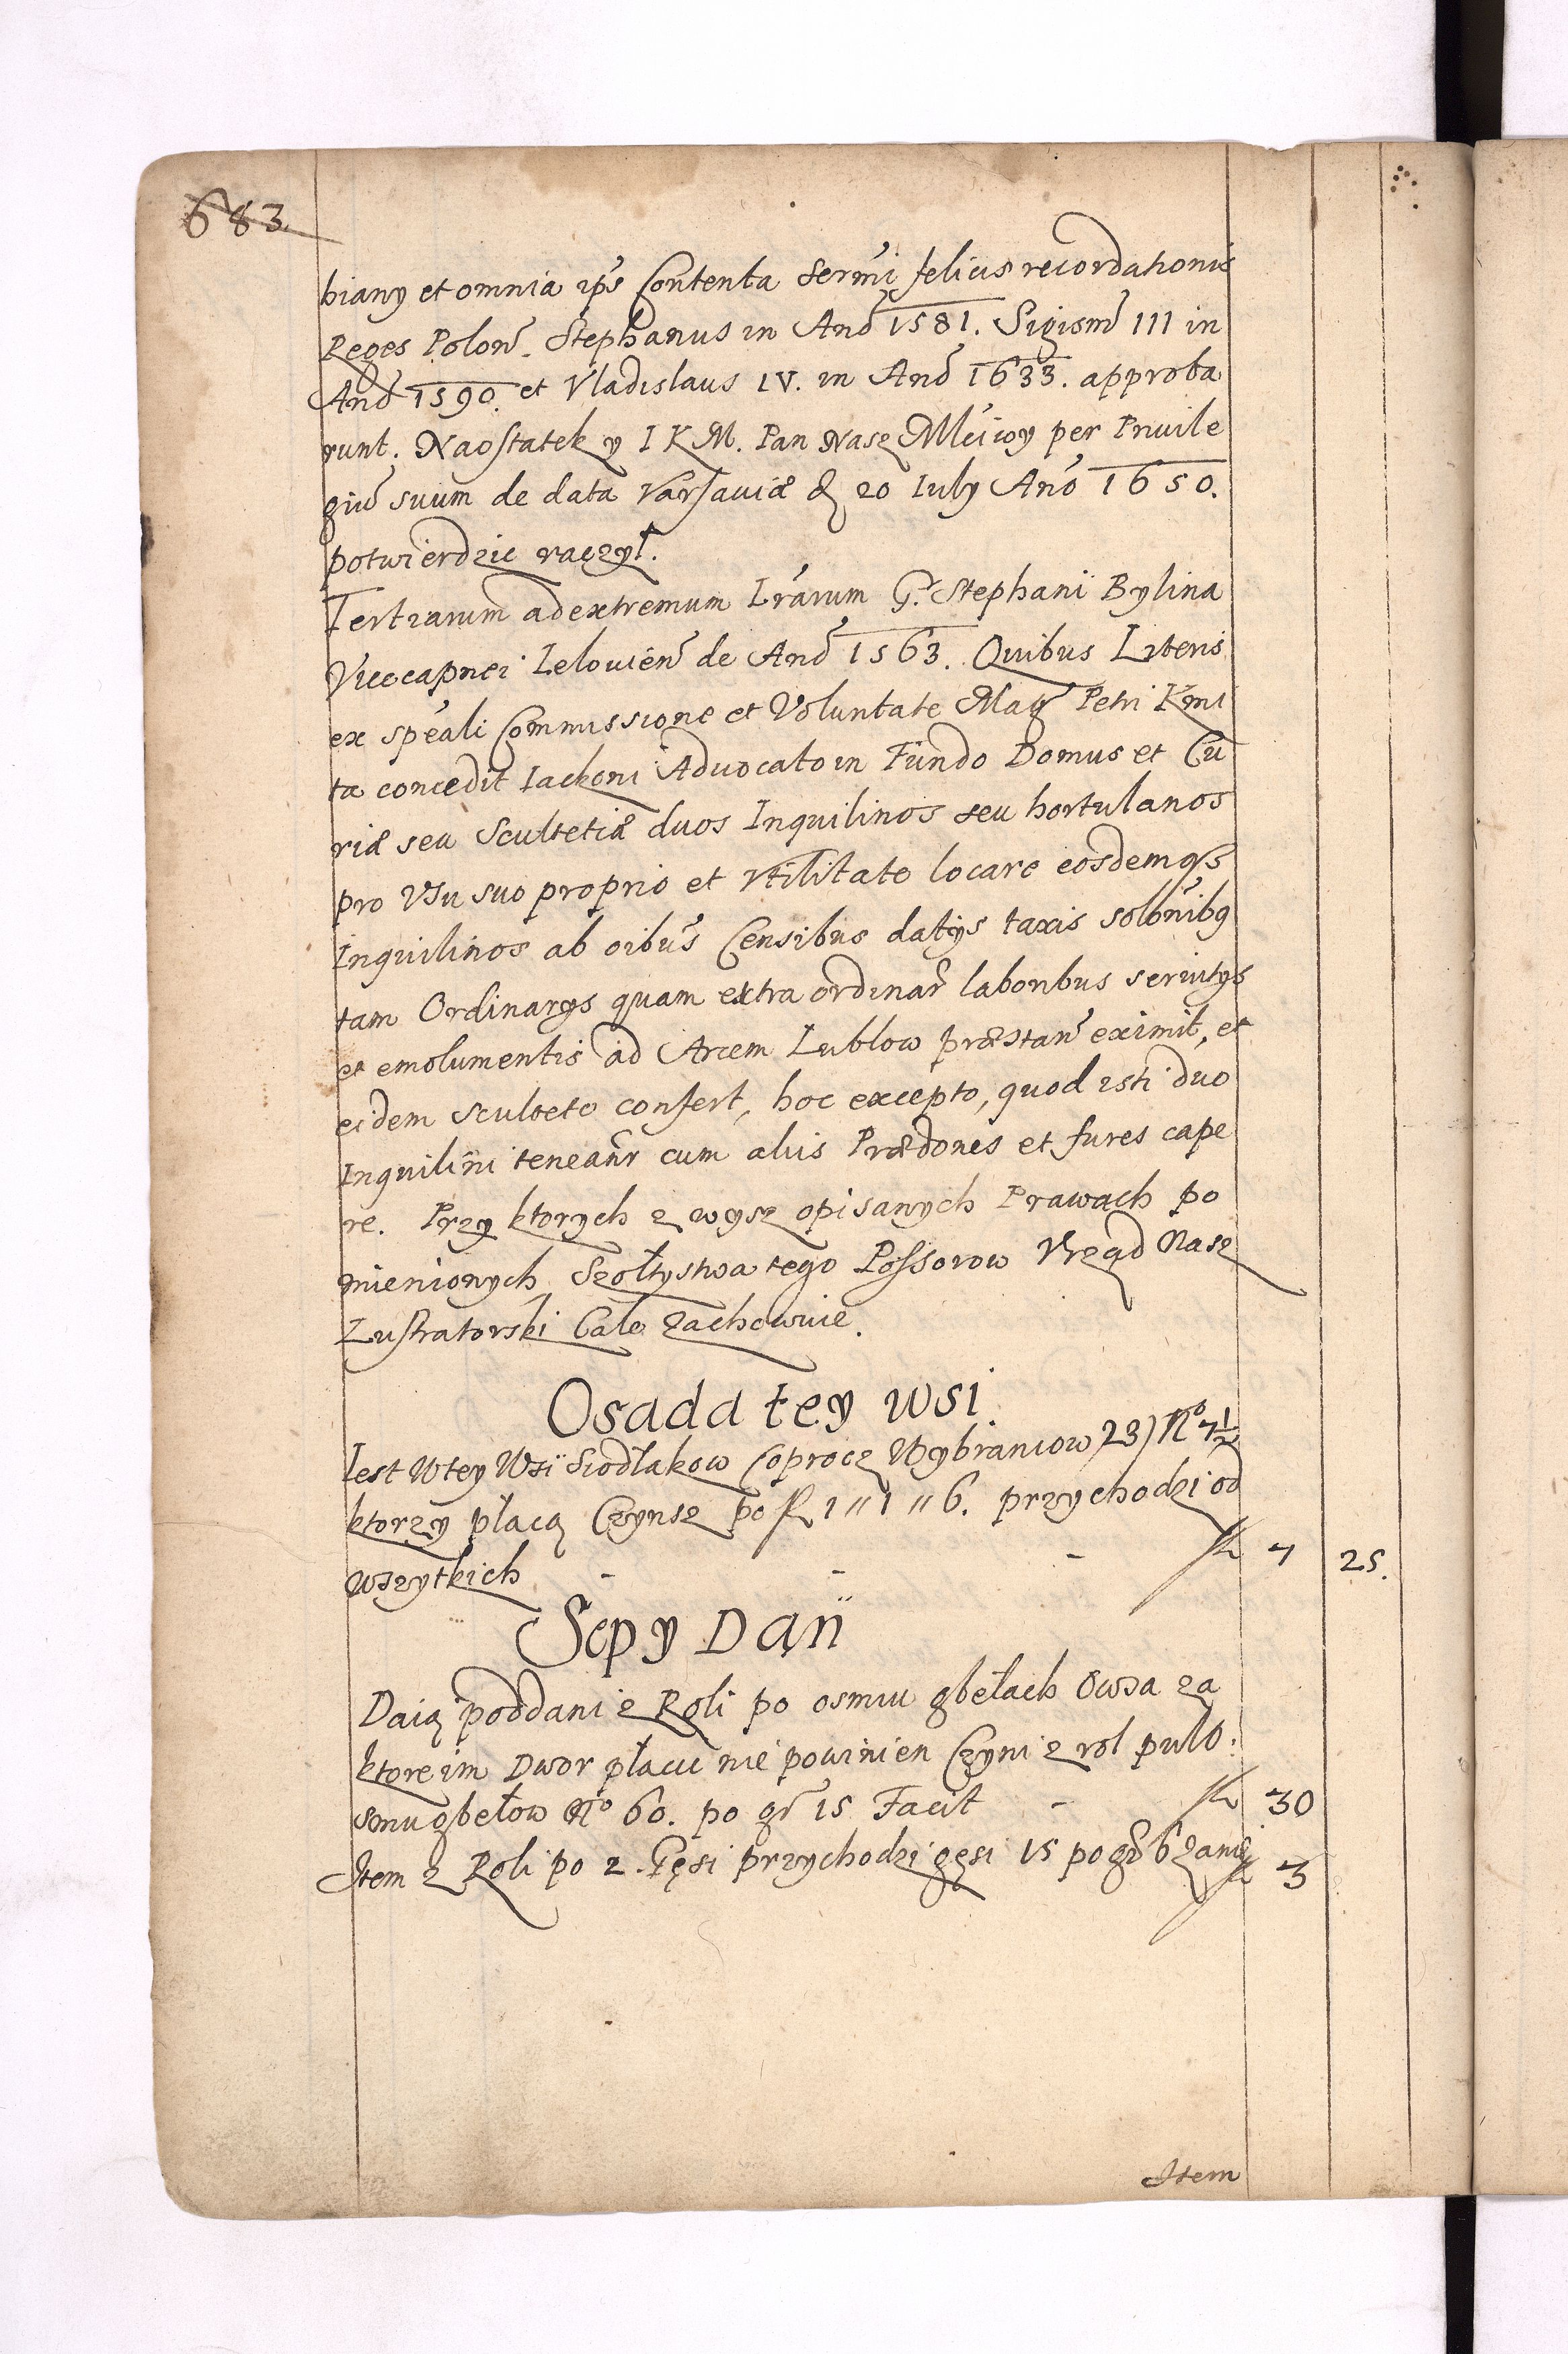 683
biany et omnia ip̃s Contenta Serm̃i felicis recordationis
Reges Polon̄. Stephanus in Anō 1581. Sigism̄ III in
Anō 1590. et Vladislaus IV. in Anō 1633. approba
runt. Naostatek y I K M. Pan Nasz Młciwy per Privile
giū suum de data Varsaviæ D 20 Iuly Anō 1650.
potwierdzic raczył.
Tertiarum ad extremum Lrarum G. Stephani Bylina
Vicecapnei Lelovien̄ de Anō 1563. Quibus Literis
ex speali Commissione et Voluntate Mag Petri Kmi
ta concedit Iackoni Advocato in Fundo Domus et Cu
riæ seu Scultetiæ duos Inquilinos seu hortulanos
pro Usu suo proprio et Utilitate locare eosdemqs
Inquilinos ab oibus Censibus datys taxis solōnibg
tam Ordinarys quam extraordinar̄ laboribus servitys
et emolumentis ad Arcem Lublow præstan̄ eximit, et
eidem Sculteto confert, hoc excepto, quod isti duo
Inquilini teneanr cum aliis Prædones et fures cape
re. Przy ktorych z wysz opisanych Prawach po
mienionych Szołtystwa tego Possorow Vrząd Nasz
Lustratorski Cale zachowuie.
Osada tey wsi
Iest Wtey Wsi Siodłakow (oprocz Wybrancow 23) No 7½
ktorzy płacą Czynsz po fl 1 " 1 " 6. przychodzi od
wszytkich - - - fl 7 25.
Sepy Dań
Daią poddani z Roli po osmiu gbełach Owsa za
ktore im Dwor płacic nie powinien Czyni z rol pulo:
smu gbełow No 60. po gr 15 Facit - fl 30
Item z Roli po 2. Gęsi przychodzi gęsi 15 po gr 6 zanię fl 3
Item